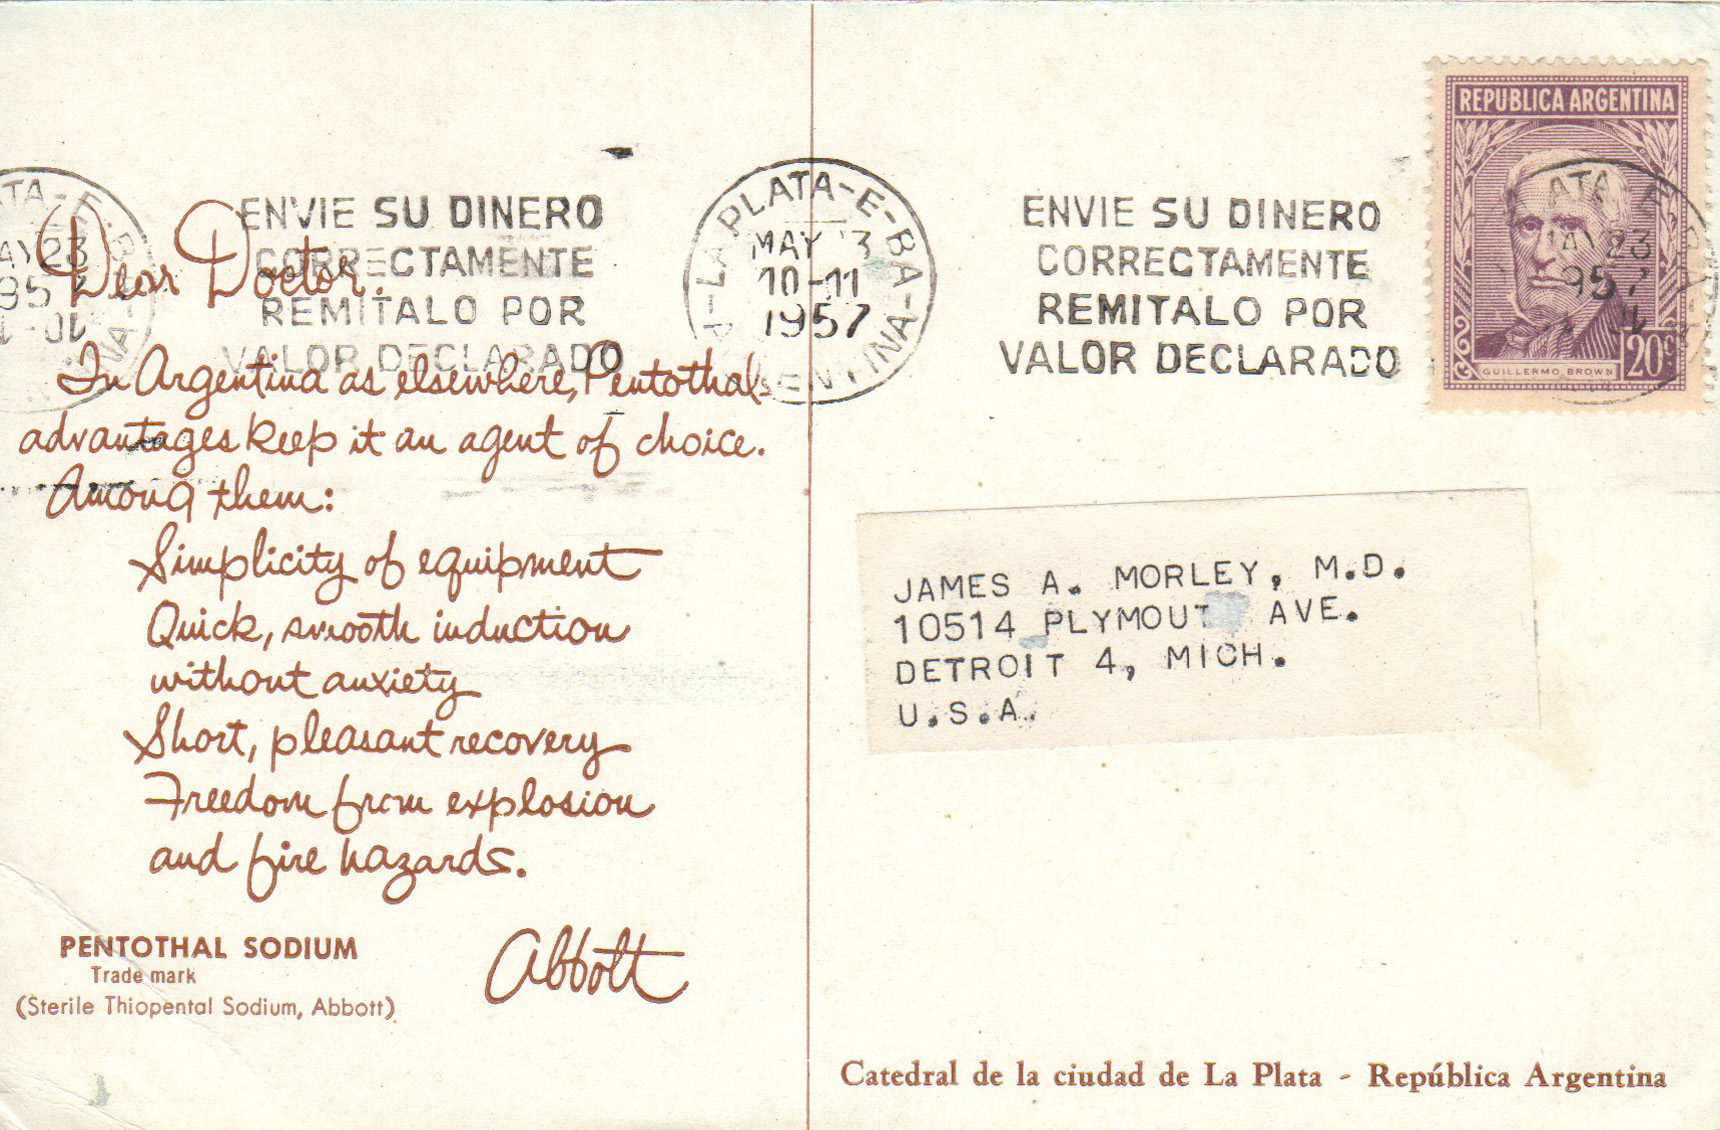 REPUBLICA ARGENTINA
GUILLERMO BROWN
20c
ENVIE SU DINERO
CORRECTAMENTE
REMITALO POR
VALOR DECLARADO
LA PLATA-E-BA-
MAY 3
10-11
1957
ENVIE SU DINERO
CORRECTAMENTE
REMITALO POR
VALOR DECLARADO
MAY 23
Dear Doctor:
In Argentina as elsewhere, Pentothal's
advantages keep it an agent of choice.
Among them:
Simplicity of equipment
Quick, smooth induction
without anxiety
Short, pleasant recovery
Freedom from explosion
and fire hazards.
Abbott
PENTOTHAL SODIUM
Trade mark
(Sterile Thiopental Sodium, Abbott)
JAMES A. MORLEY, M.D.
10514 PLYMOUT AVE.
DETROIT 4, MICH.
U.S.A.
Catedral de la ciudad de La Plata - República Argentina